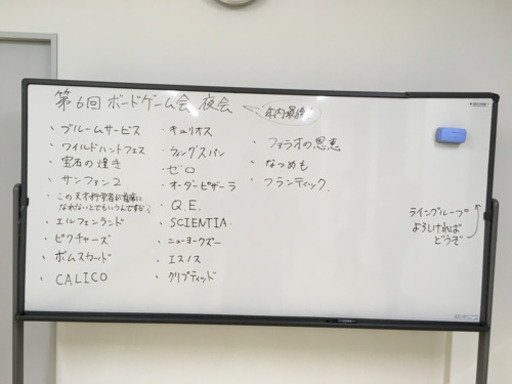 第6回 ボードゲーム会 夜会
年内最終!!
・ブルームサービス
・ワイルドハントフェス
・宝石の煌き
・サンファン2
・この天才科学者が首席に
なれないとでもいうんですか?
・エルフェンランド
・ピクチャーズ
・ボムスカッド
・CALICO
・キュリオス
・ウイングスパン
・ゼロ
・オーダーピザーラ
・Q.E.
・SCIENTIA
・ニューヨークズー
・エスノス
・クリプティッド
・ファラオの恩恵
・なつめも
・フランティック
ライングループ
よろしければ
どうぞ